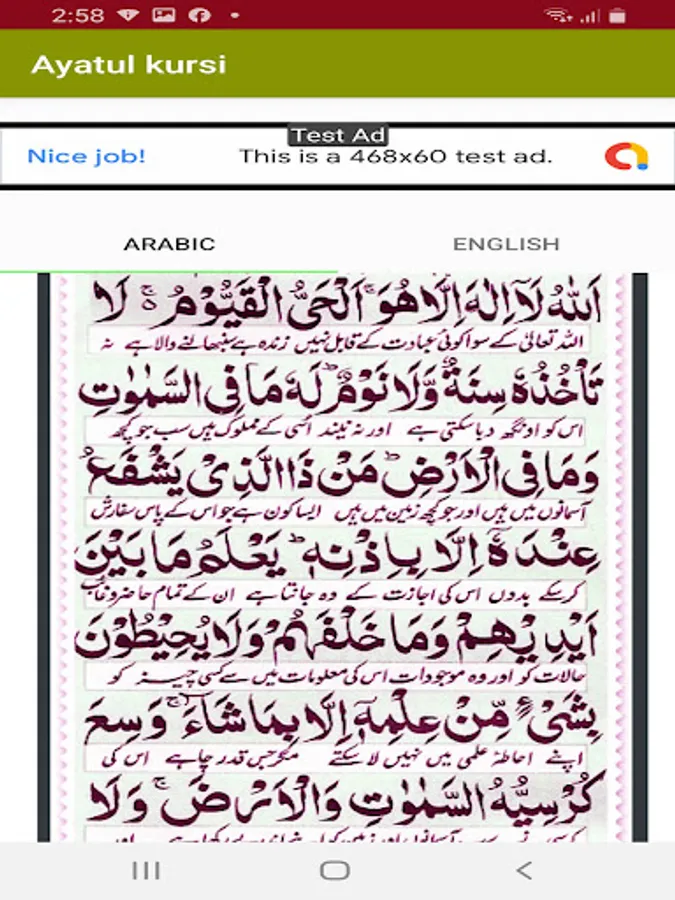 2:58
Ayatul kursi
Test Ad
Nice job! This is a 468x60 test ad.
ARABIC ENGLISH
اَللّٰهُ لَاۤ اِلٰهَ اِلَّا هُوَ ۚ اَلْحَیُّ الْقَیُّوْمُ ۚ۬ لَا
اللہ تعالیٰ کے سوا کوئی عبادت کے قابل نہیں زندہ ہے سنبھالنے والا ہے نہ
تَاْخُذُهٗ سِنَةٌ وَّلَا نَوْمٌ ؕ لَهٗ مَا فِی السَّمٰوٰتِ
اس کو اونگھ دبا سکتی ہے اور نہ نیند اسی کے مملوک ہیں سب جو کچھ
وَمَا فِی الْاَرْضِ ؕ مَنْ ذَا الَّذِیْ یَشْفَعُ
آسمانوں میں ہیں اور جو کچھ زمین میں ہیں ایسا کون ہے جو اس کے پاس سفارش
عِنْدَهٗۤ اِلَّا بِاِذْنِهٖ ؕ یَعْلَمُ مَا بَیْنَ
کر سکے بدوں اس کی اجازت کے وہ جانتا ہے ان کے تمام حاضر و غائب
اَیْدِیْهِمْ وَمَا خَلْفَهُمْ ۚ وَلَا یُحِیْطُوْنَ
حالات کو اور وہ موجودات اس کی معلومات میں سے کسی چیز کو
بِشَیْءٍ مِّنْ عِلْمِهٖۤ اِلَّا بِمَا شَآءَ ۚ وَسِعَ
اپنے احاطۂ علمی میں نہیں لا سکتے مگر جس قدر چاہے اس کی
كُرْسِیُّهُ السَّمٰوٰتِ وَالْاَرْضَ ۚ وَلَا